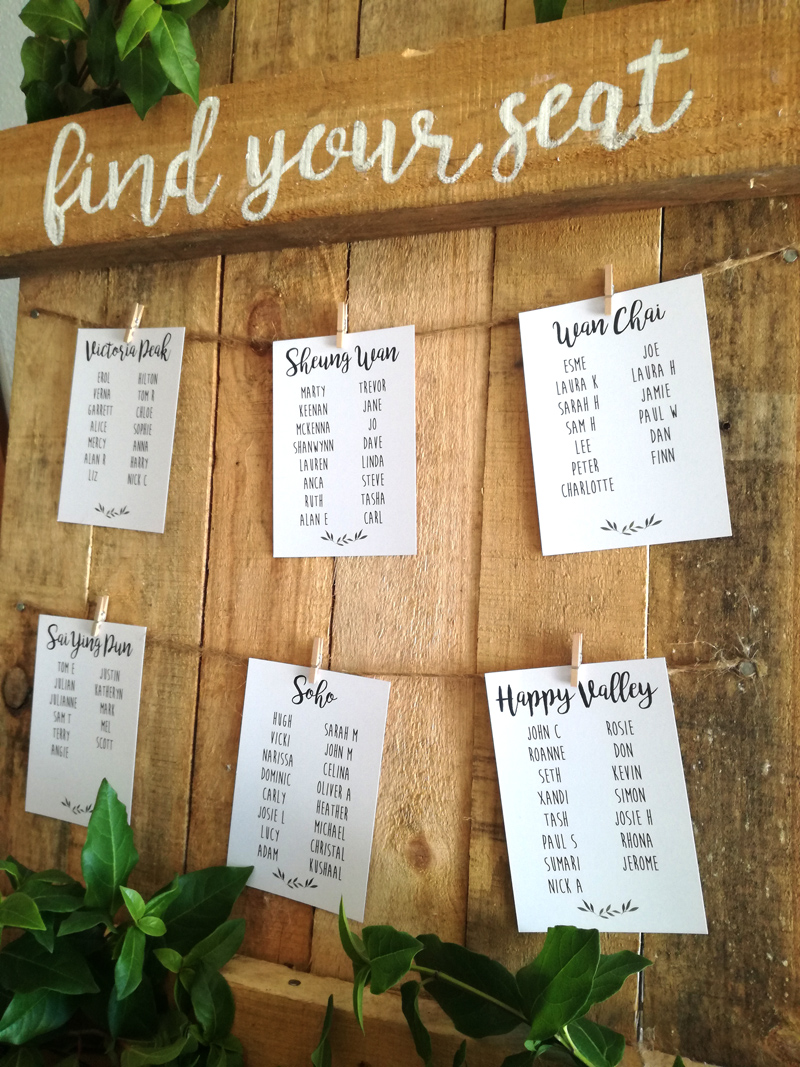 find your seat
Victoria Peak
EROL HILTON
VERNA TOM R
GARRETT CHLOE
ALICE SOPHIE
MERCY ANNA
ALAN R HARRY
LIZ NICK C
Sheung Wan
MARTY TREVOR
KEENAN JANE
MCKENNA JO
SHANWYNN DAVE
LAUREN LINDA
ANCA STEVE
RUTH TASHA
ALAN E CARL
Wan Chai
ESME JOE
LAURA K LAURA H
SARAH H JAMIE
SAM H PAUL W
LEE DAN
PETER FINN
CHARLOTTE
Sai Ying Pun
TOM E JUSTIN
JULIAN KATHERYN
JULIANNE MARK
SAM T MEL
TERRY SCOTT
ANGIE
Soho
HUGH SARAH M
VICKI JOHN M
NARISSA CELINA
DOMINIC OLIVER A
CARLY HEATHER
JOSIE L MICHAEL
LUCY CHRISTAL
ADAM KUSHAAL
Happy Valley
JOHN C ROSIE
ROANNE DON
SETH KEVIN
XANDI SIMON
TASH JOSIE H
PAUL S RHONA
SUMARI JEROME
NICK A